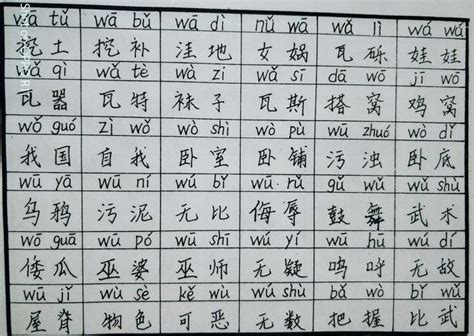 wā tǔ wā bǔ wā dì nǚ wā wǎ lì wá wá
挖土 挖补 洼地 女娲 瓦砾 娃娃
wǎ qì wǎ tè wà zi wǎ sī dā wō jī wō
瓦器 瓦特 袜子 瓦斯 搭窝 鸡窝
wǒ guó zì wǒ wò shì wò pù wū zhuó wò dǐ
我国 自我 卧室 卧铺 污浊 卧底
wū yā wū ní wú bǐ wǔ rǔ gǔ wǔ wǔ shù
乌鸦 污泥 无比 侮辱 鼓舞 武术
wō guā wū pó wū shī wú yí wū hū wú dí
倭瓜 巫婆 巫师 无疑 呜呼 无故
wū jǐ wù sè kě wù wú shù bǎ wò bǐ wǔ
屋脊 物色 可恶 无数 把握 比武